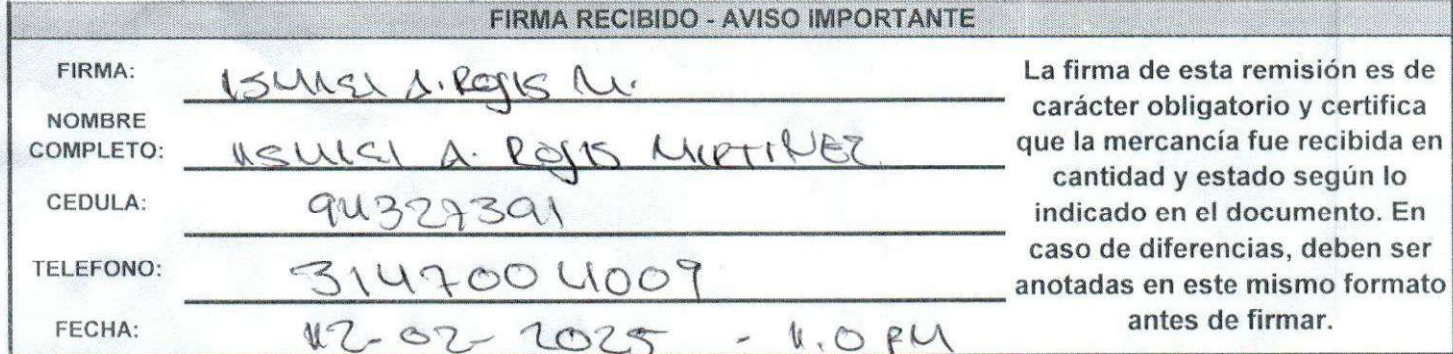 FIRMA RECIBIDO - AVISO IMPORTANTE
FIRMA: A. M.
NOMBRE
COMPLETO: A. MARTINEZ
CEDULA: 94327391
TELEFONO: 3147004009
FECHA: 12-02-2025 - 1.0 PM
La firma de esta remisión es de
carácter obligatorio y certifica
que la mercancía fue recibida en
cantidad y estado según lo
indicado en el documento. En
caso de diferencias, deben ser
anotadas en este mismo formato
antes de firmar.